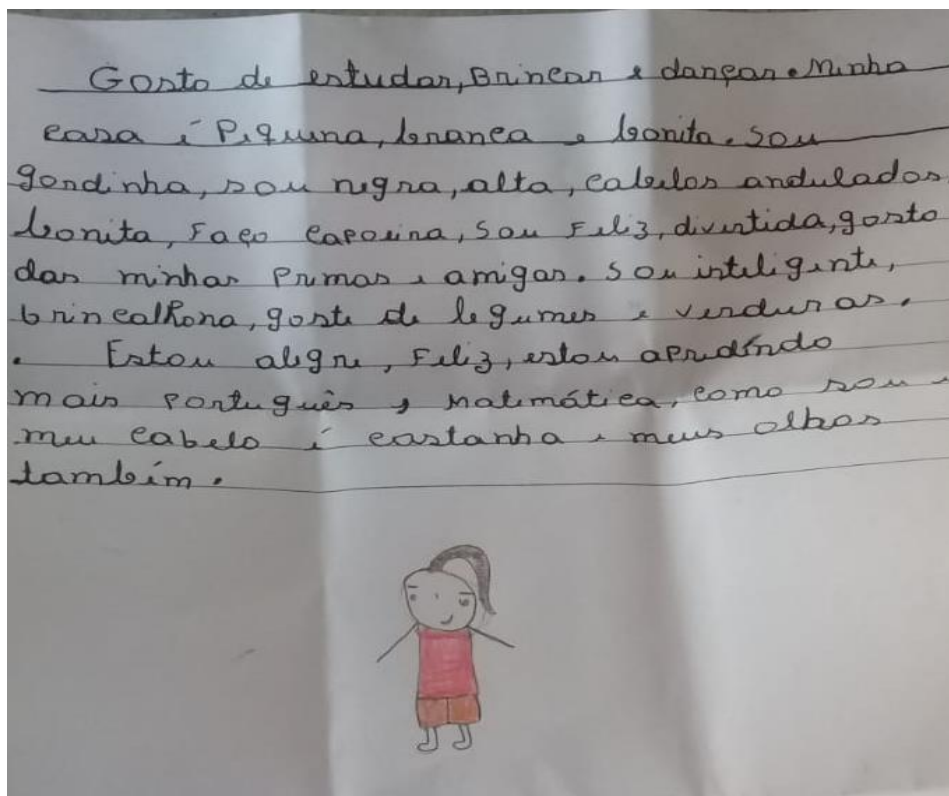 Gosto de estudar, Brincar e dançar. Minha
casa é Piquena, branca e bonita. Sou
gordinha, sou negra, alta, cabelos andulados
bonita, Faço capoeira, Sou Feliz, divertida, gosto
das minhas Primas e amigas. Sou inteligente,
brincalhona, goste de legumes e verduras.
. Estou alegre, Feliz, estou aprendendo
mais português, Matemática, como sou e
meu cabelo é castanha e meus olhos
também.